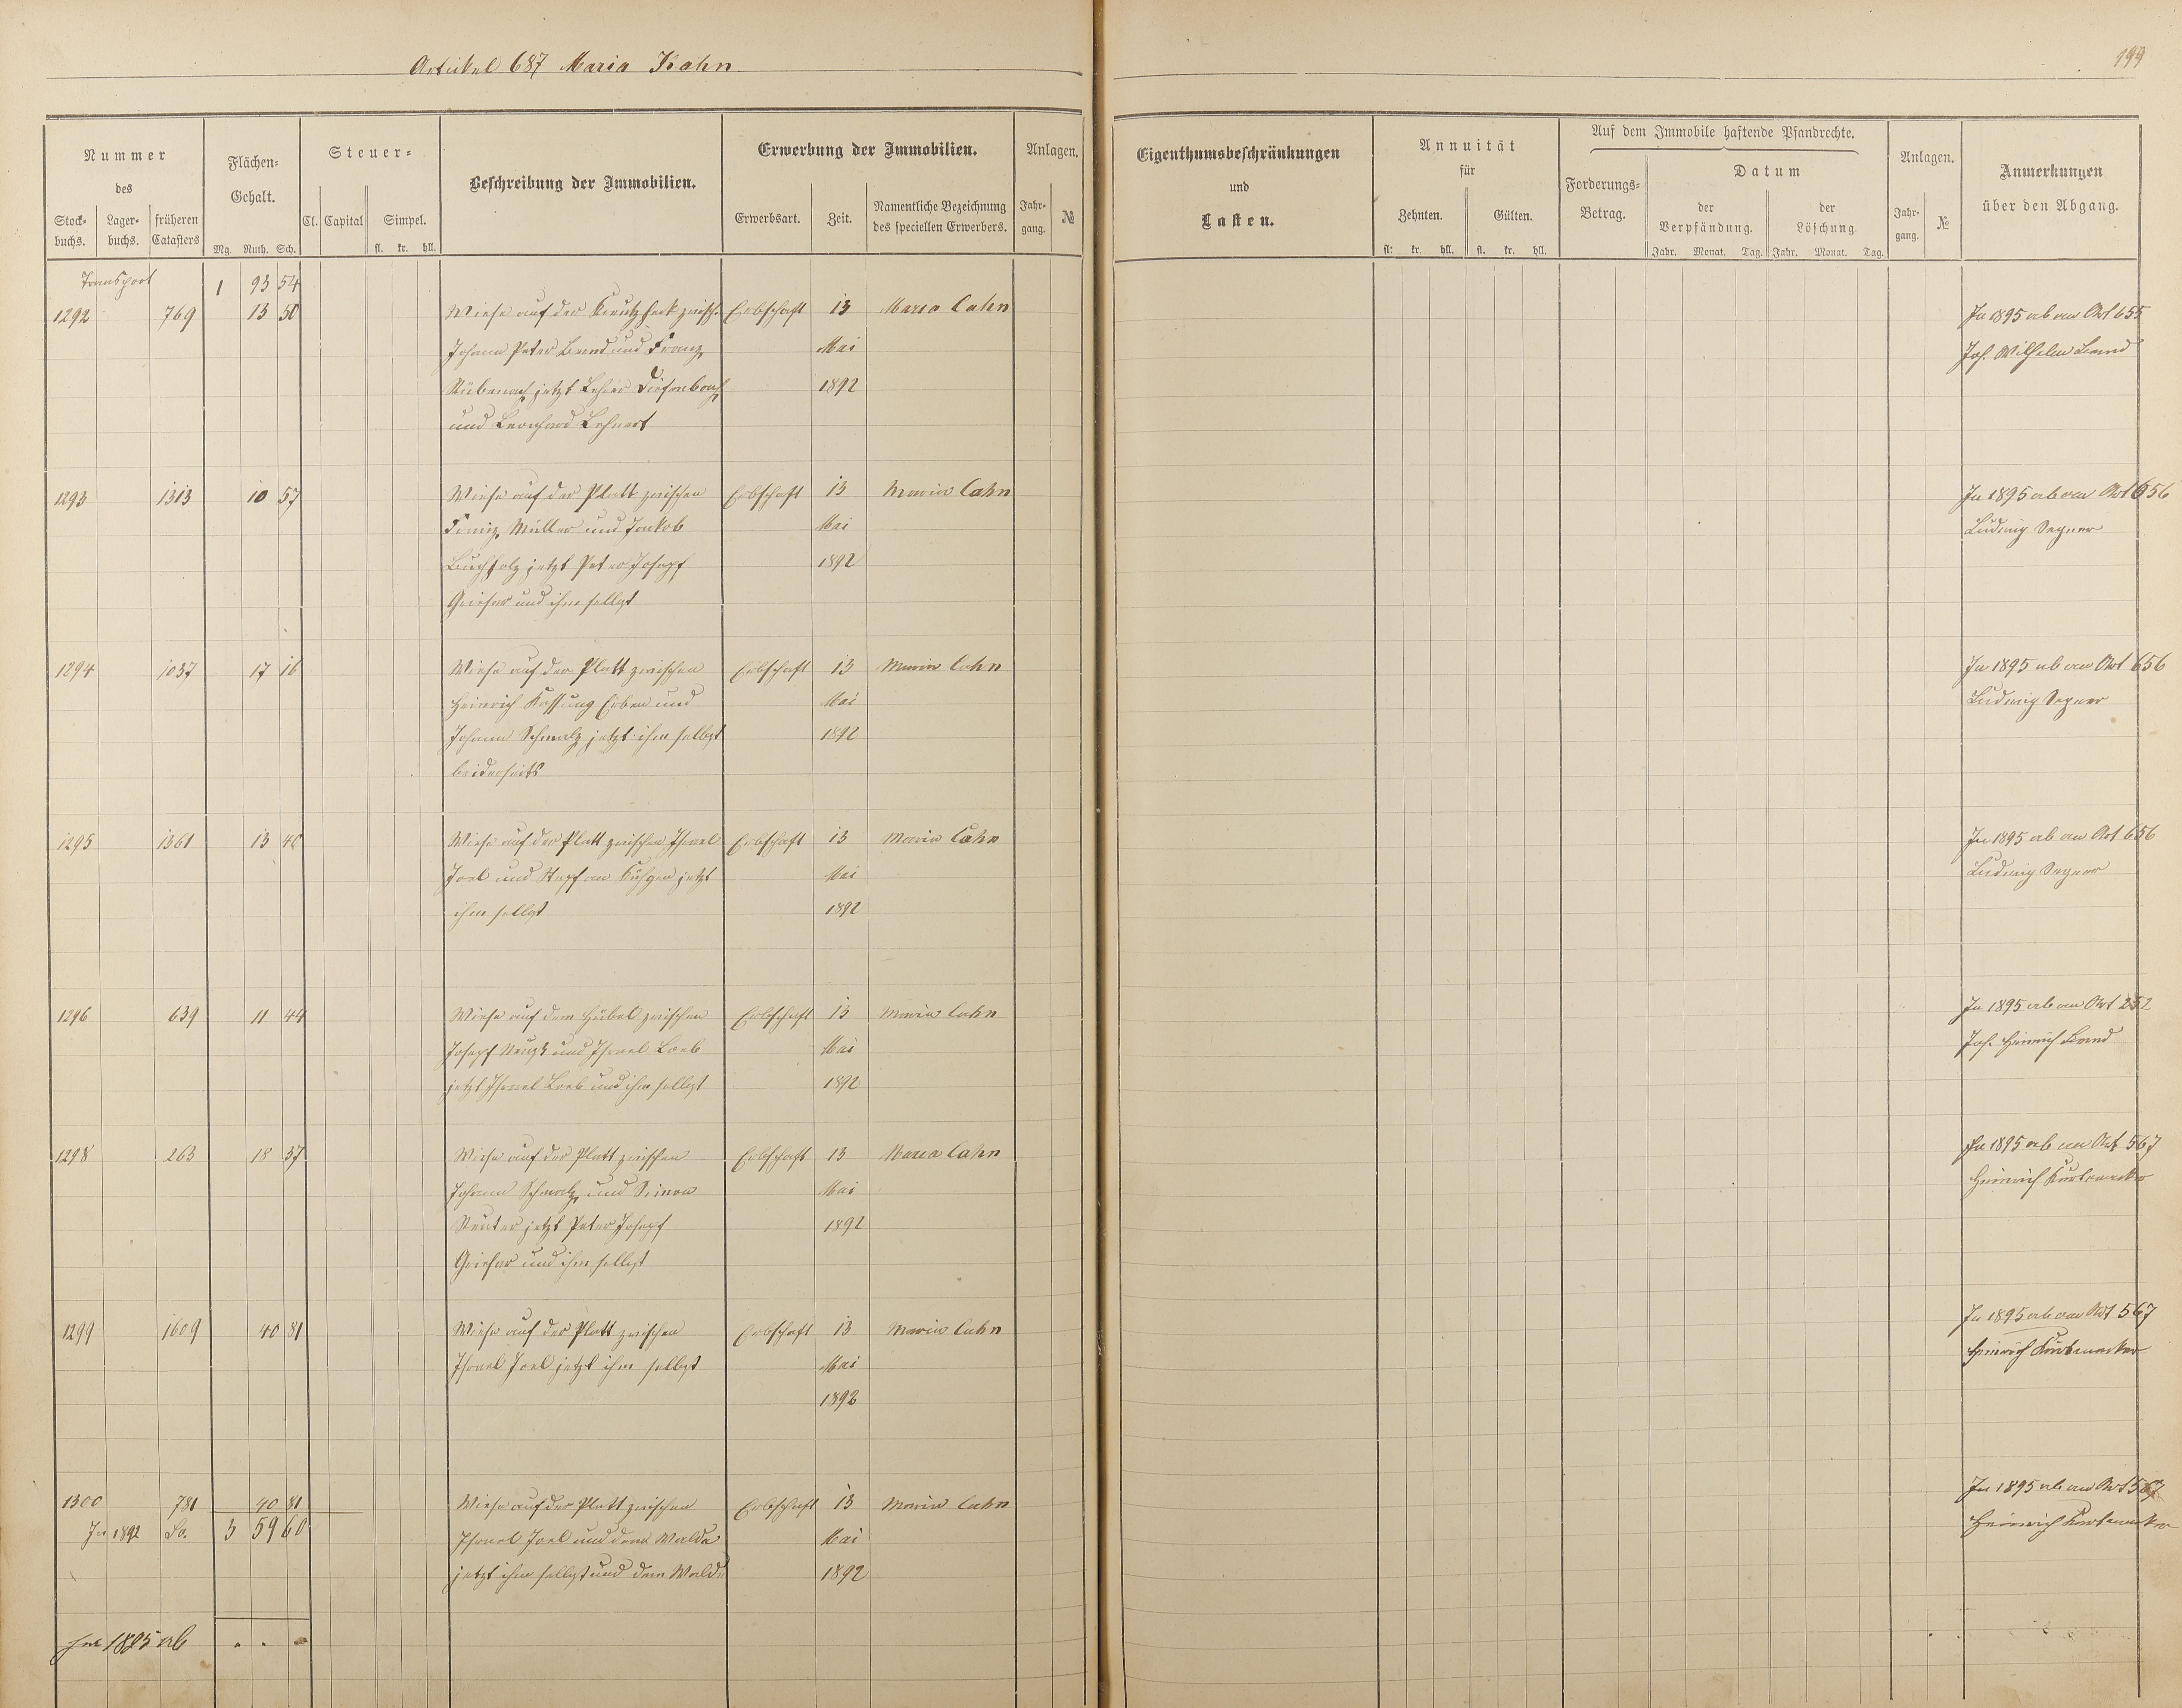 Artikel 687 Maria Kahn
199
Nummer
des
Stock-
buchs.
Lager-
buchs.
früheren
Catasters
Flächen-
Gehalt.
Mg. Ruth. Sch.
Steuer-
Cl. Capital Simpel.
fl. kr. hll.
Beschreibung der Immobilien.
Erwerbung der Immobilien.
Erwerbsart. Zeit.
Namentliche Bezeichnung
des speciellen Erwerbers.
Anlagen.
Jahr-
gang.
№
Eigenthumsbeschränkungen
und
Lasten.
Annuität
für
Zehnten. Gülten.
fl. kr. hll. fl. kr. hll.
Auf dem Immobile haftende Pfandrechte.
Forderungs-
Betrag.
Datum
der
Verpfändung.
der
Löschung.
Jahr. Monat. Tag. Jahr. Monat. Tag.
Anlagen.
Jahr-
gang.
№
Anmerkungen
über den Abgang.
Transport 1 93 54
1292 769 13 50 Wiese auf der Kreutzheck zwisch. Erbschaft 13 Maria Cahn In 1895 ab an Art 655
Johann Peter Brend und Franz Mai Joh. Wilhelm Brend
Rübenach jetzt Lehrer Diefenbach 1892
und Leonhard Lehnert
1293 1313 10 57 Wiese auf der Platt zwischen Erbschaft 13 Maria Cahn In 1895 ab an Art 656
Franz Müller und Jakob Mai Ludwig Segner
Buchholz jetzt Peter Joseph 1892
Grieser und ihm selbst
1294 1037 17 16 Wiese auf der Platt zwischen Erbschaft 13 Maria Cahn In 1895 ab an Art 656
Heinrich Kassung Erben und Mai Ludwig Segner
Johann Schmalz jetzt ihm selbst 1892
beiderseits
1295 1361 13 40 Wiese auf der Platt zwischen Israel Erbschaft 13 Maria Cahn In 1895 ab an Art 656
Joel und Stephan jetzt Mai Ludwig Segner
ihm selbst 1892
1296 639 11 44 Wiese auf dem Hübel zwischen Erbschaft 13 Maria Cahn In 1895 ab an Art 252
Joseph und Israel Loeb Mai Joh. Heinrich Brend
jetzt Israel Loeb und ihm selbst 1892
1298 263 18 37 Wiese auf der Platt zwischen Erbschaft 13 Maria Cahn In 1895 ab an Art 567
Johann Schmalz und Simon Mai Heinrich
Reuter jetzt Peter Joseph 1892
Grieser und ihm selbst
1299 1609 40 81 Wiese auf der Platt zwischen Erbschaft 13 Maria Cahn In 1895 ab an Art 567
Israel Joel jetzt ihm selbst Mai Heinrich
1892
1300 781 40 81 Wiese auf der Platt zwischen Erbschaft 13 Maria Cahn In 1895 ab an Art 567
In 1892 Sa. 3 59 60 Israel Joel und dem Walde Mai Heinrich
jetzt ihm selbst und dem Walde 1892
In 1895 ab . . -